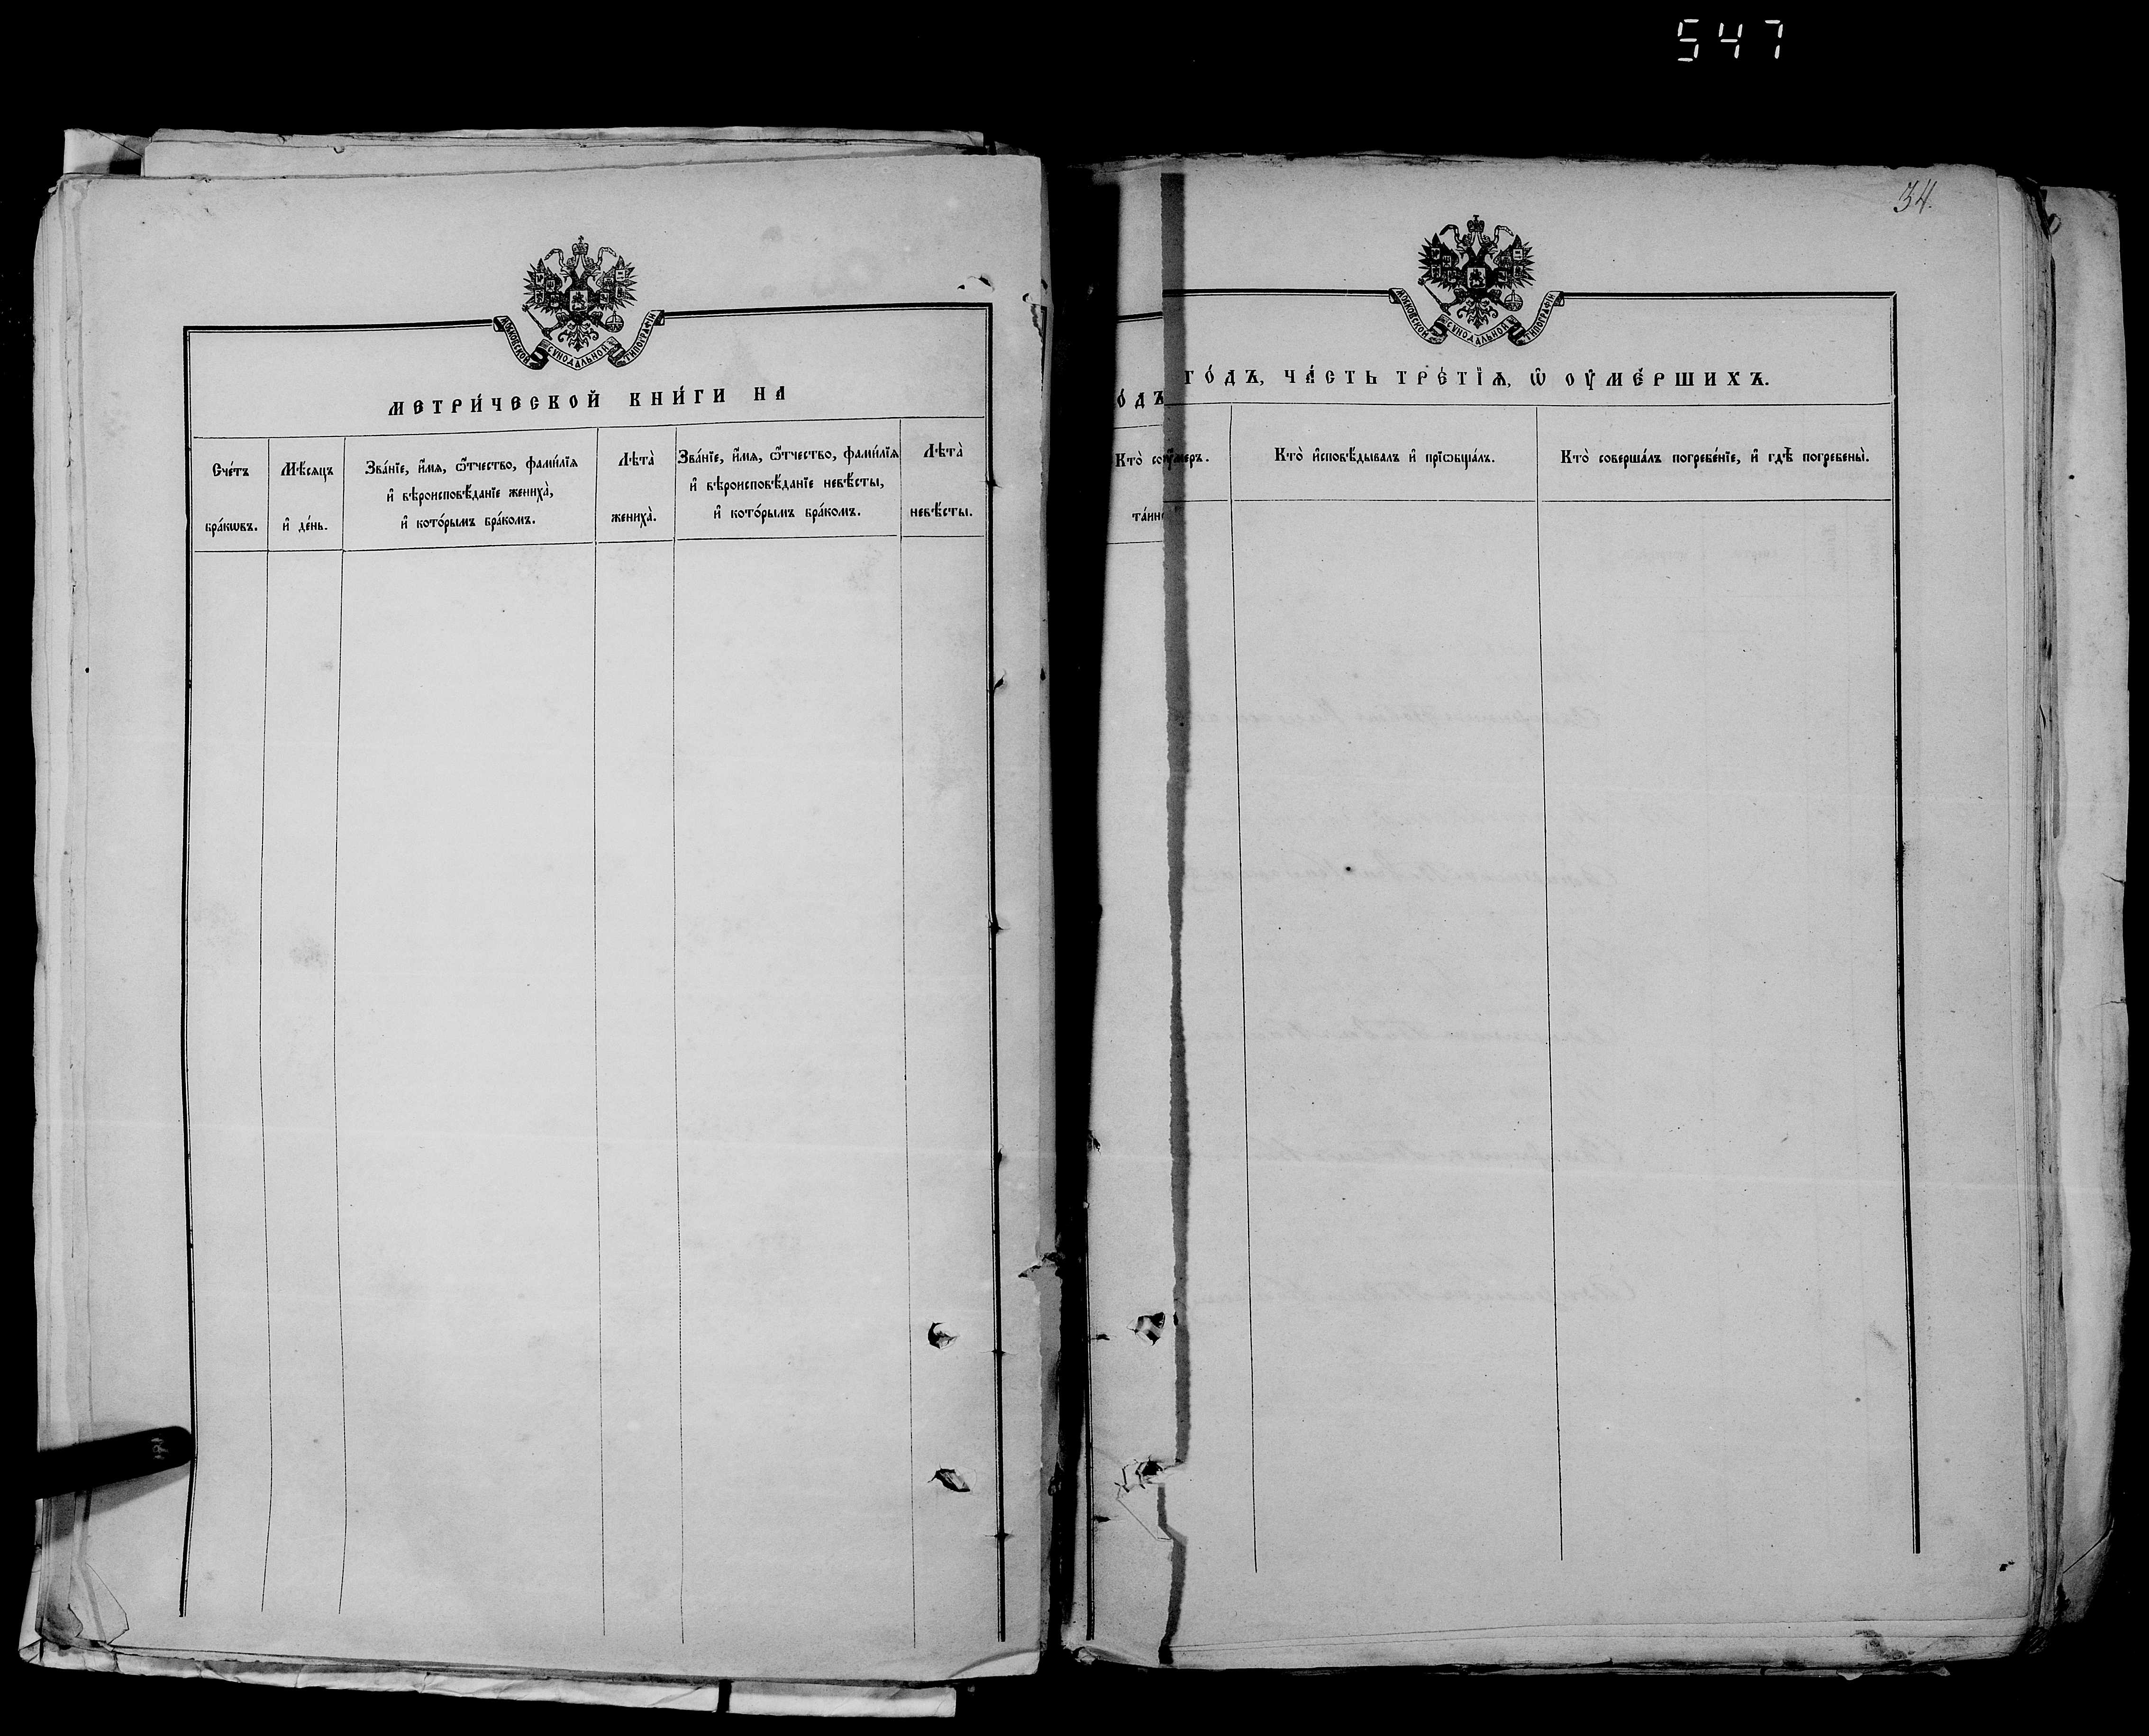 547
34.
МОСКОВСКОЙ СУНОДАЛЬНОЙ ТИПОГРАФІИ
МЕТРИ́ЧЕСКОЙ КНИ́ГИ НА
Сче́тъ
бра́кѡвъ.
Мѣ́сяцъ
и҆ де́нь.
Зва́нїе, и҆́мѧ, ѻ҆́тчество, фами́лїѧ
и҆ вѣроисповѣ́данїе жениха̀,
и҆ кото́рымъ бра́комъ.
Лѣта̀
жениха̀.
Зва́нїе, и҆́мѧ, ѻ҆́тчество, фами́лїѧ
и҆ вѣроисповѣ́данїе невѣ́сты,
и҆ кото́рымъ бра́комъ.
Лѣта̀
невѣ́сты.
о́дъ
Кто̀ со
та́инс
МОСКОВСКОЙ СУНОДАЛЬНОЙ ТИПОГРАФІИ
ГО́ДЪ, ЧА́СТЬ ТРЕ́ТЇѦ, Ѡ҆ ОУ҆МЕ́РШИХЪ.
у҆́меръ.
Кто̀ и҆сповѣ́дывалъ и҆ прїѡбща́лъ.
Кто̀ соверша́лъ погребе́нїе, и҆ гдѣ̀ погребены̀.